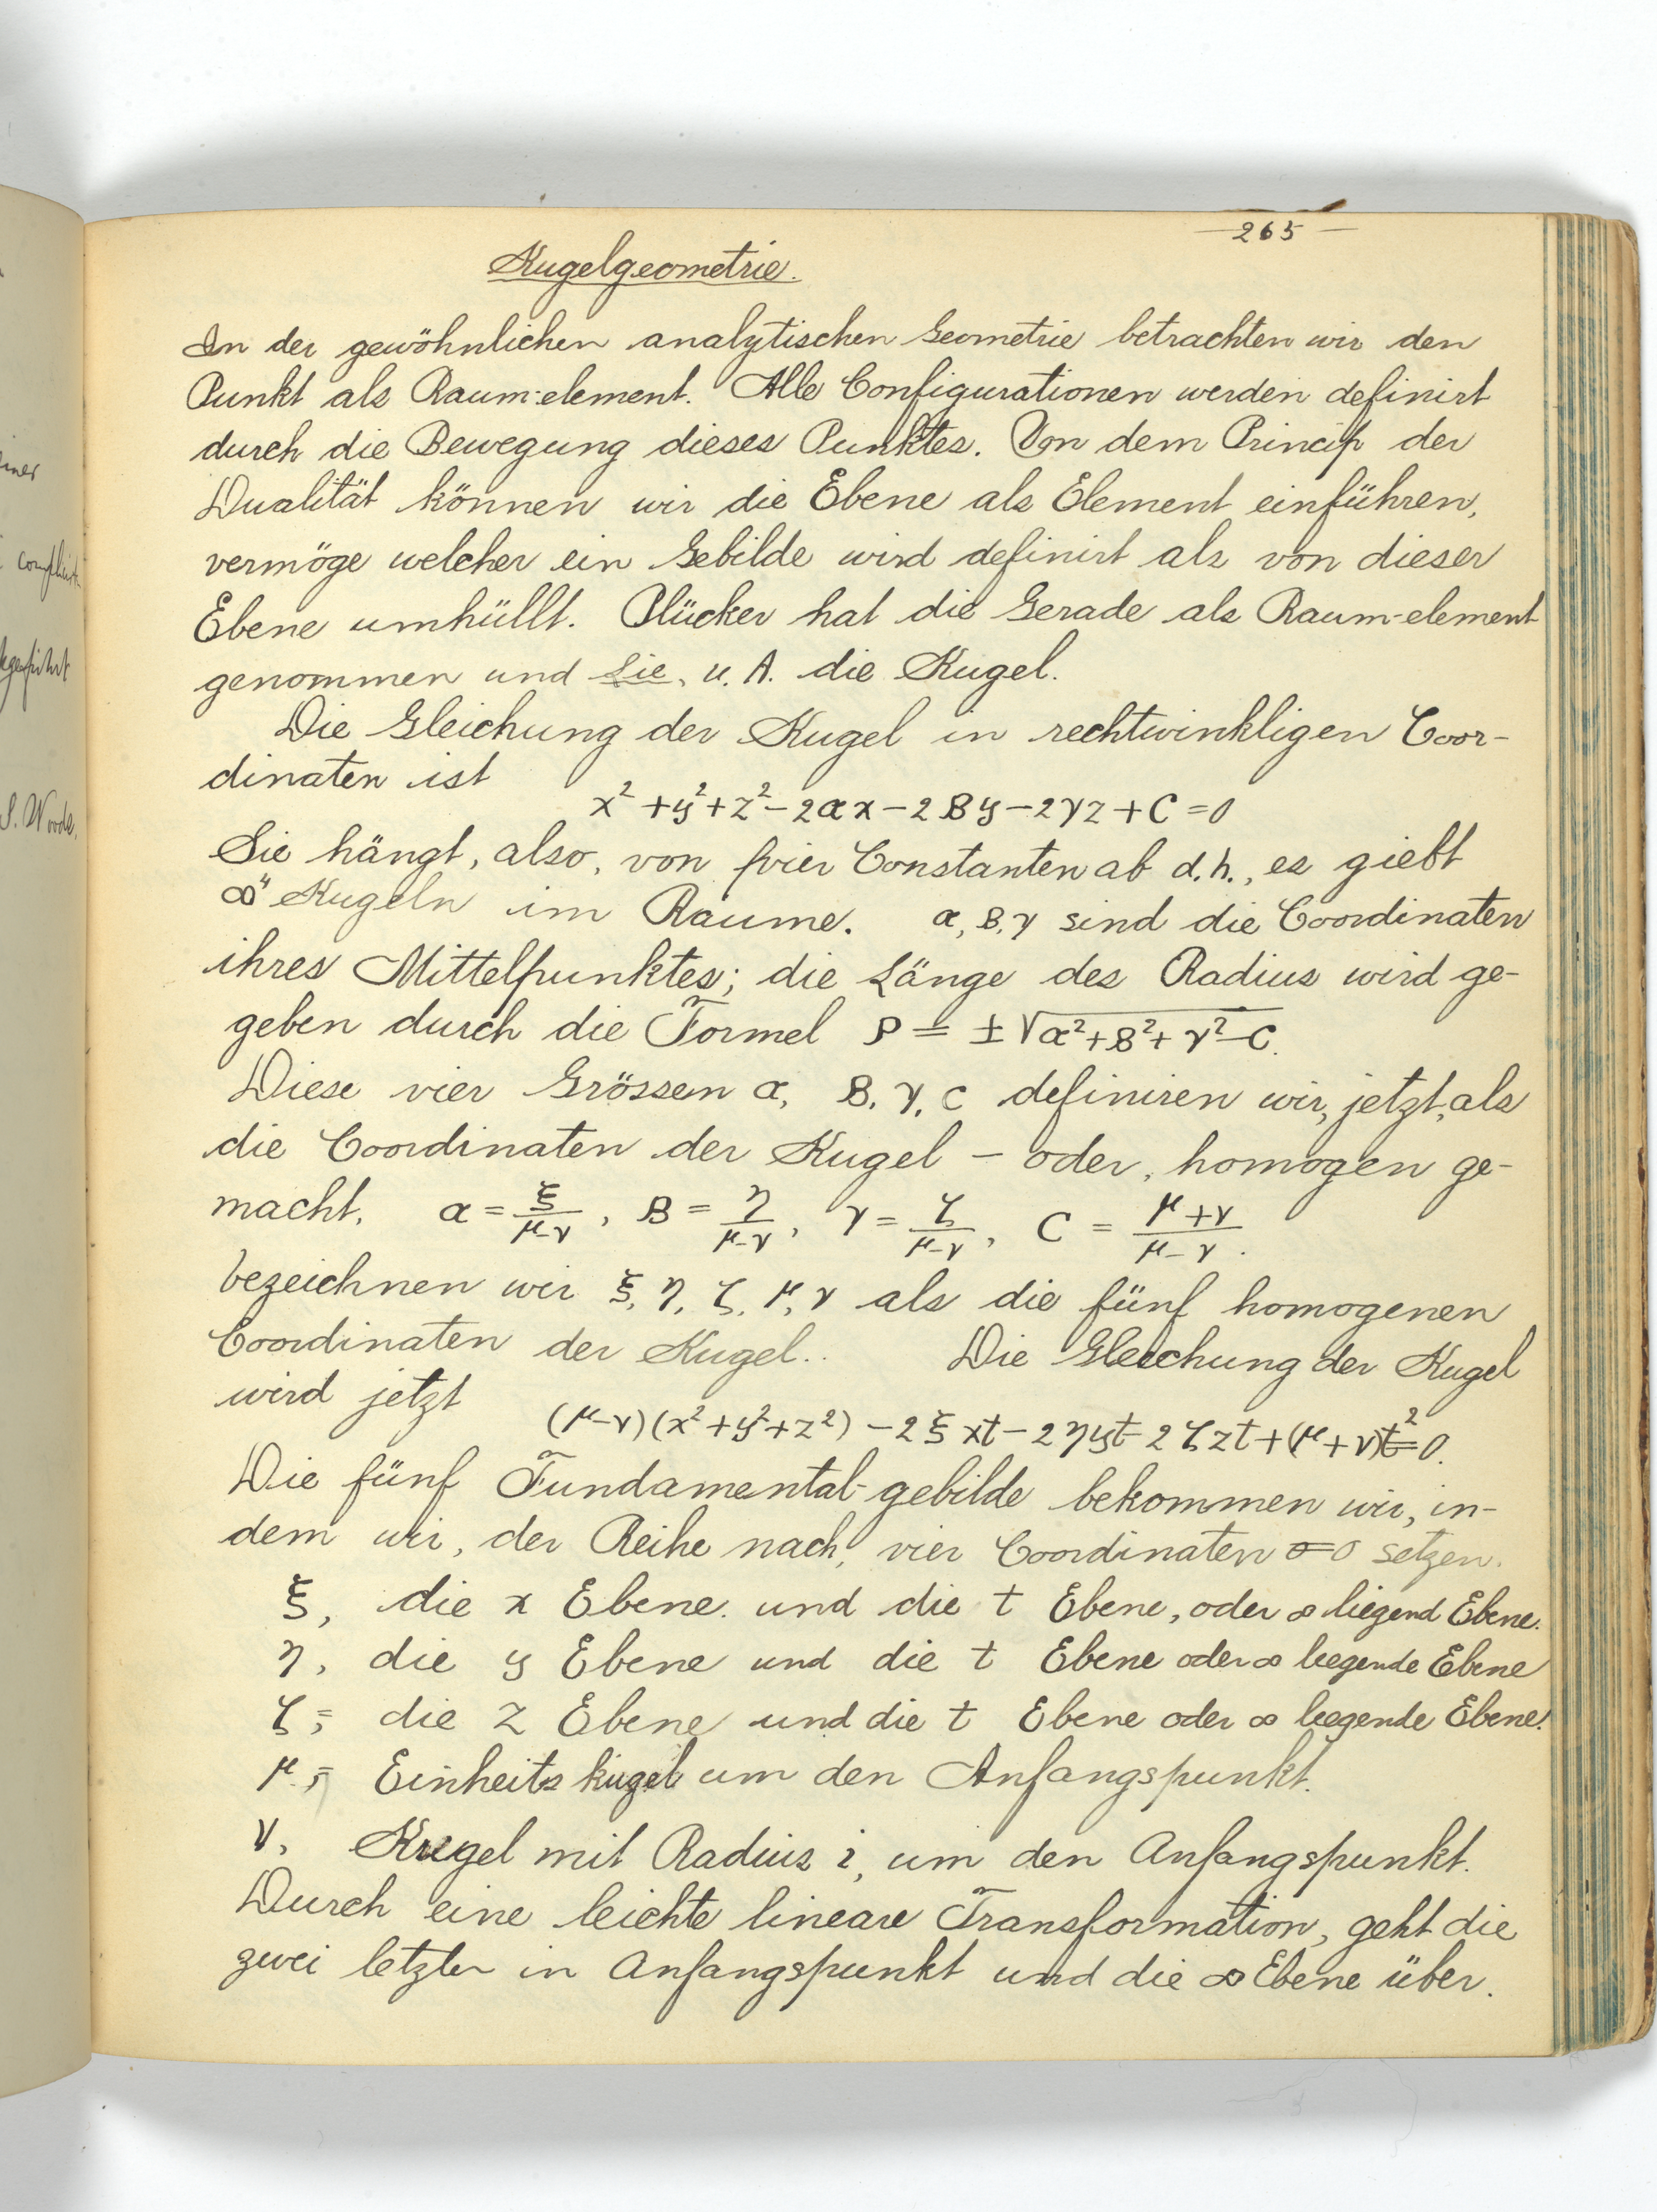 265
Kugelgeometrie.
In der gewöhnlichen analytischen Geometrie betrachten wir den
Punkt als Raum-element. Alle Configurationen werden definirt
durch die Bewegung dieses Punktes. Von dem Princip der
Dualität können wir die Ebene als Element einführen,
vermöge welcher ein Gebilde wird definirt als von dieser
Ebene umhüllt. Plücker hat die Gerade als Raum-element
genommen und Lie, u. A. die Kugel.
Die Gleichung der Kugel in rechtwinkligen Coor-
dinaten ist
x² + y² + z² - 2αx - 2βy - 2γz + C = 0
Sie hängt, also, von vier Constanten ab d.h., es giebt
∞⁴ Kugeln im Raume. α, β, γ sind die Coordinaten
ihres Mittelpunktes; die Länge des Radius wird ge-
geben durch die Formel ρ = ±√(α² + β² + γ² - C).
Diese vier Grössen α, β, γ, C definiren wir, jetzt, als
die Coordinaten der Kugel - oder, homogen ge-
macht, α = ξ/(μ-ν), β = η/(μ-ν), γ = ζ/(μ-ν), C = (μ+ν)/(μ-ν).
bezeichnen wir ξ, η, ζ, μ, ν als die fünf homogenen
Coordinaten der Kugel.. Die Gleichung der Kugel
wird jetzt
(μ-ν)(x² + y² + z²) - 2ξxt - 2ηyt - 2ζzt + (μ+ν)t² = 0.
Die fünf Fundamental-gebilde bekommen wir, in-
dem wir, der Reihe nach, vier Coordinaten = 0 setzen.
ξ, die x Ebene. und die t Ebene, oder ∞ liegend Ebene.
η, die y Ebene und die t Ebene oder ∞ liegende Ebene
ζ, = die z Ebene und die t Ebene oder ∞ liegende Ebene.
μ, = Einheits kugel um den Anfangspunkt.
ν, Kugel mit Radius i, um den Anfangspunkt.
Durch eine leichte lineare Transformation, geht die
zwei letzte in Anfangspunkt und die ∞ Ebene über.
S. Woods.